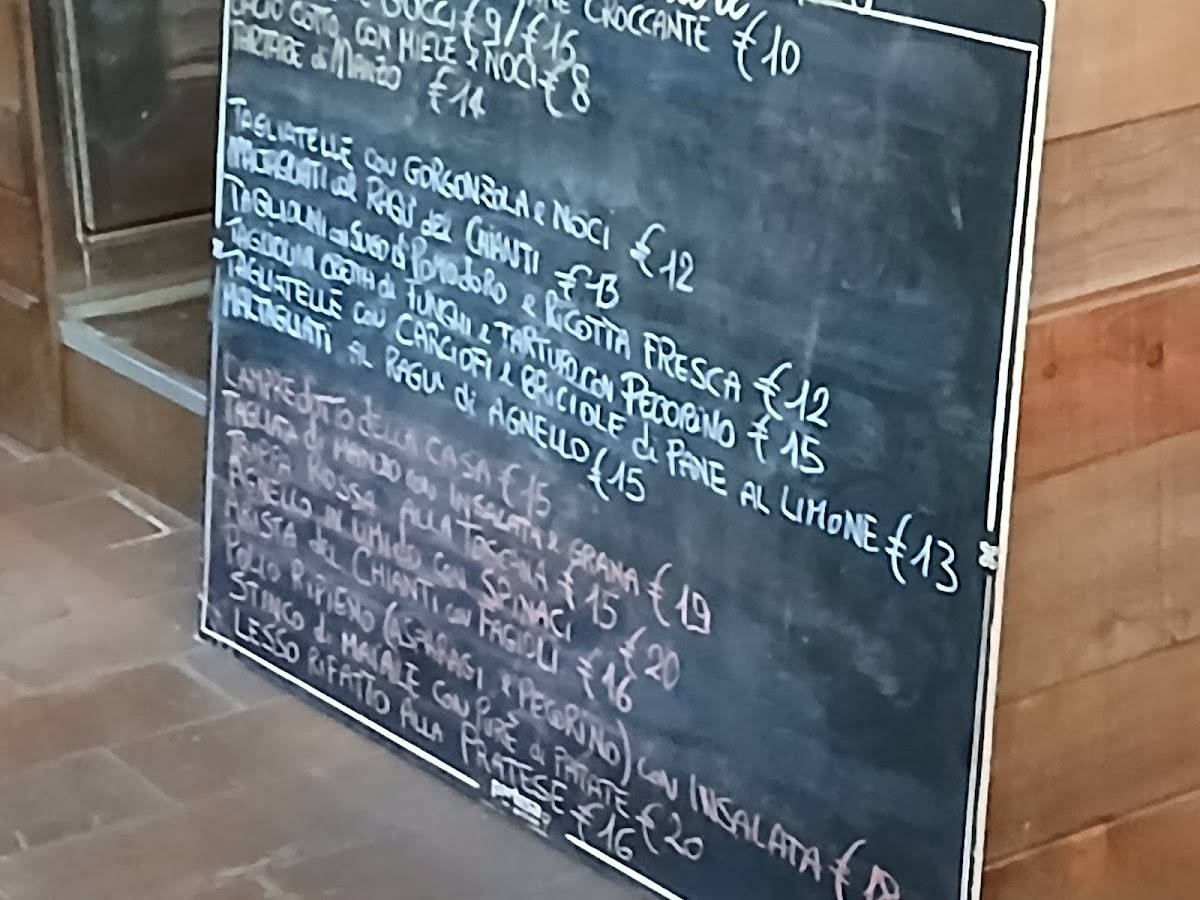 CROCCANTE €10
€9/€16
CACIO COTTO, CON MIELE e NOCI €8
TARTARE di MANZO €14
TAGLIATELLE con GORGONZOLA e NOCI €12
MALTAGLIATI col RAGÙ del CHIANTI €13
TAGLIOLINI con SUGO di POMODORO e RICOTTA FRESCA €12
TAGLIOLINI CREMA di FUNGHI e TARTUFO CON PECORINO €15
TAGLIATELLE con CARCIOFI e BRICIOLE di PANE AL LIMONE €13
MALTAGLIATI AL RAGU' di AGNELLO €15
LAMPREDOTTO DELLA CASA €15
TAGLIATA di MANZO con INSALATA e GRANA €19
TRIPPA ROSSA ALLA TOSCANA €15
AGNELLO IN UMIDO CON SPINACI €20
ARISTA del CHIANTI con FAGIOLI €16
POLLO RIPIENO (ASPARAGI e PECORINO) con INSALATA €18
STINCO di MAIALE CON PURÈ di PATATE €20
LESSO RIFATTO ALLA PRATESE €16